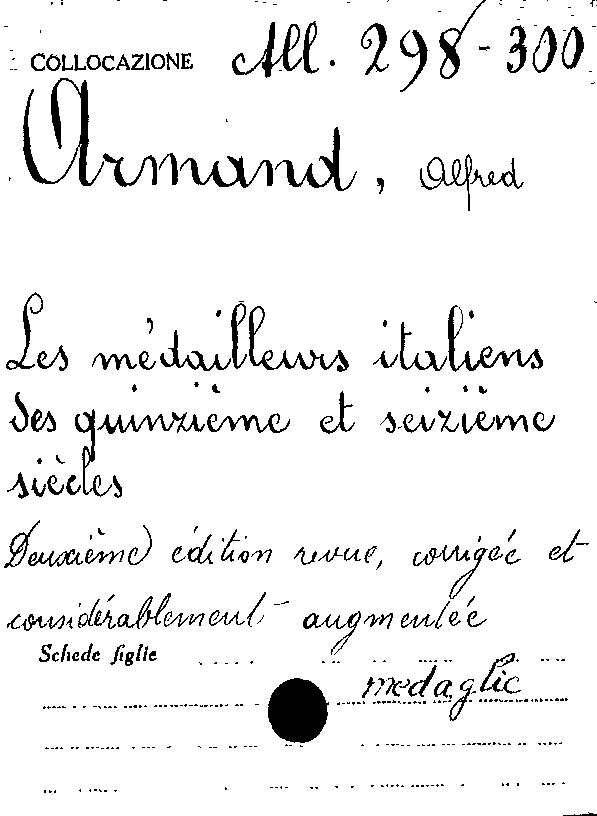 COLLOCAZIONE All. 298-300
Armand, Alfred
Les médailleurs italiens
des quinzième et seizième
siècles
Deuxième édition revue, corrigée et
considérablement augmentée
Schede figlie
medaglie